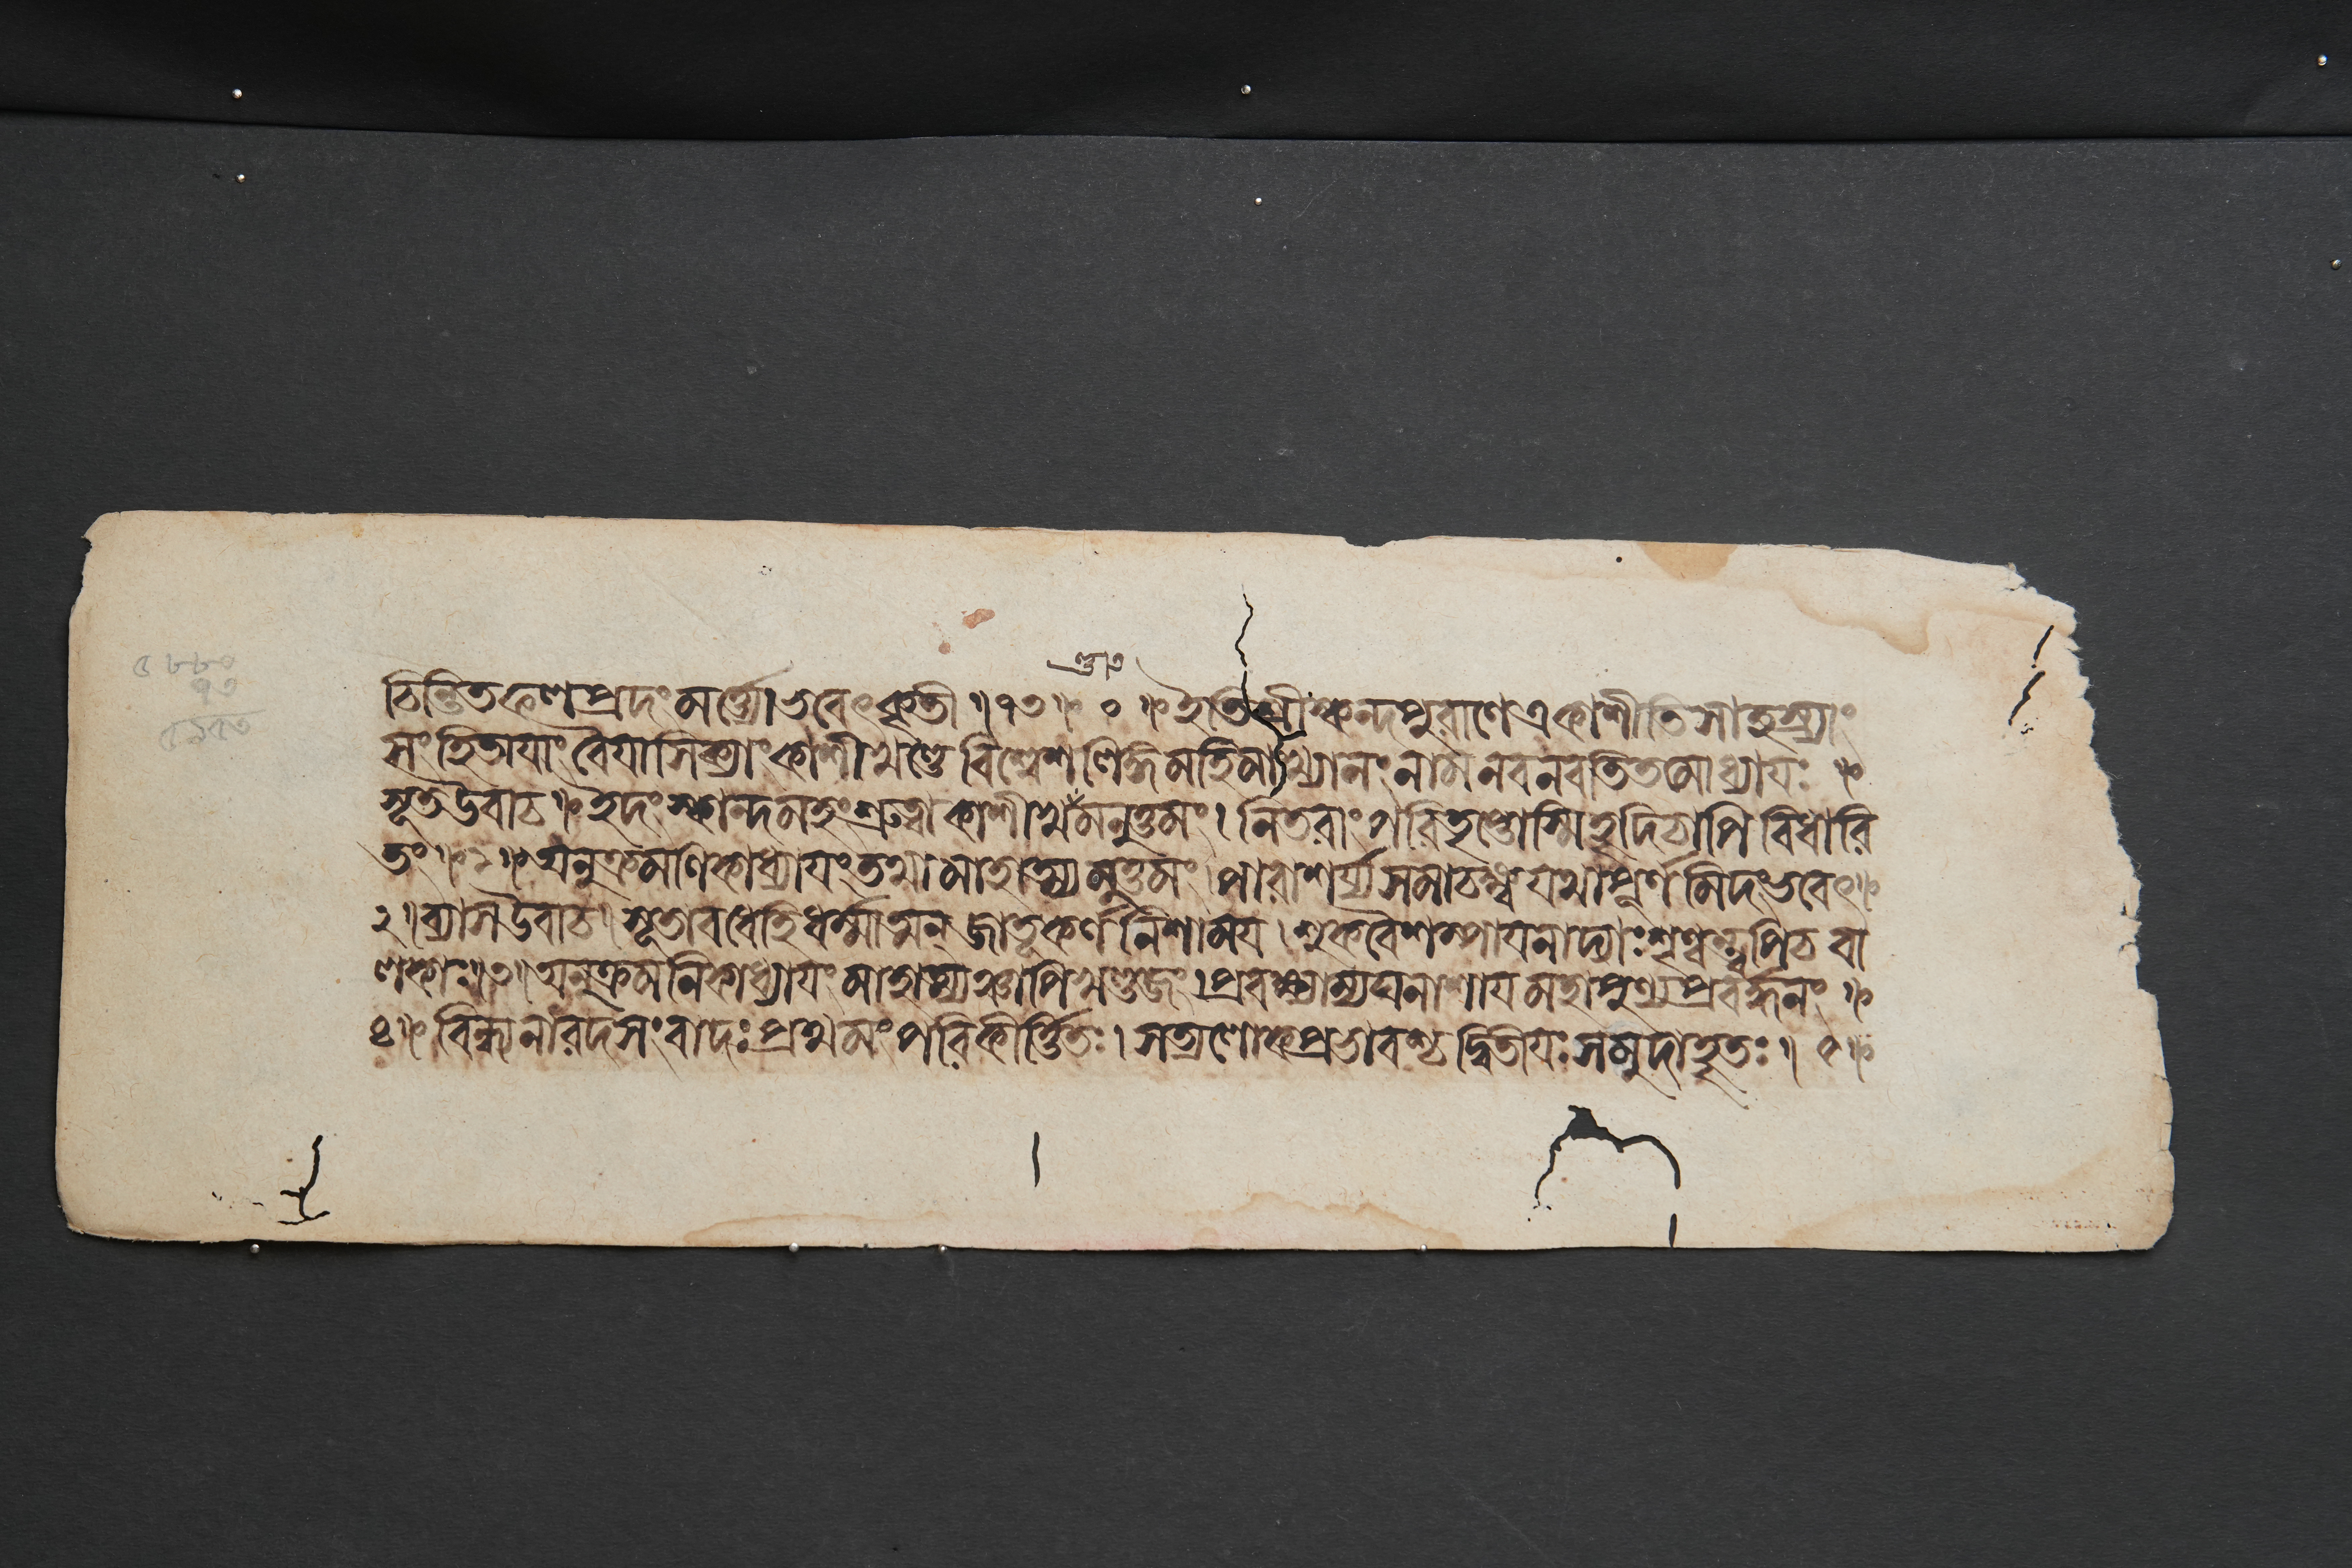 ৫৮৮০
১৩
চিন্তিতফলপ্রদং মর্ত্ত্যো ভবেৎ কৃতী ॥ ১৩ ॥ ০ ॥ ইতি শ্রীস্কন্দপুরাণে একাশীতিসাহস্র্যাং
সংহিতায়াং বৈয়াসিক্যাং কাশীখণ্ডে বিশ্বেশলিঙ্গমহিমাখ্যানং নাম নবনবতিতমোধ্যায়ঃ ॥
সূত উবাচ ॥ ইদং স্কান্দমহং শ্রুত্বা কাশীখণ্ডমনুত্তমং । নিতরাং পরিতৃপ্তোস্মি হৃদি চাপি বিধারি
তং ॥ ১ ॥ অনুক্রমণিকাধ্যায়ং তথা মাহাত্ম্যমুত্তমং । পারাশর্য্য সমাচক্ষ্ব যথা পূর্ণমিদং ভবেৎ ॥
২ ॥ ব্যাস উবাচ । সূতাবধেহি ধর্ম্মাত্মন্ জাতূকর্ণ নিশাময় । শুকবৈশম্পায়নাদ্যাঃ শৃণ্বন্ত্বপি চ বা
লকাঃ ॥ ৩ ॥ অনুক্রমনিকাধ্যায়ং মাহাত্ম্যঞ্চাপি খণ্ডজং । প্রবক্ষ্যাম্যঘনাশায় মহাপুণ্যপ্রবর্দ্ধনং ॥
৪ ॥ বিন্ধ্যনারদসংবাদঃ প্রথমং পরিকীর্ত্তিতঃ । সত্যলোকপ্রভাবশ্চ দ্বিতীয়ঃ সমুদাহৃতঃ ॥ ৫ ॥